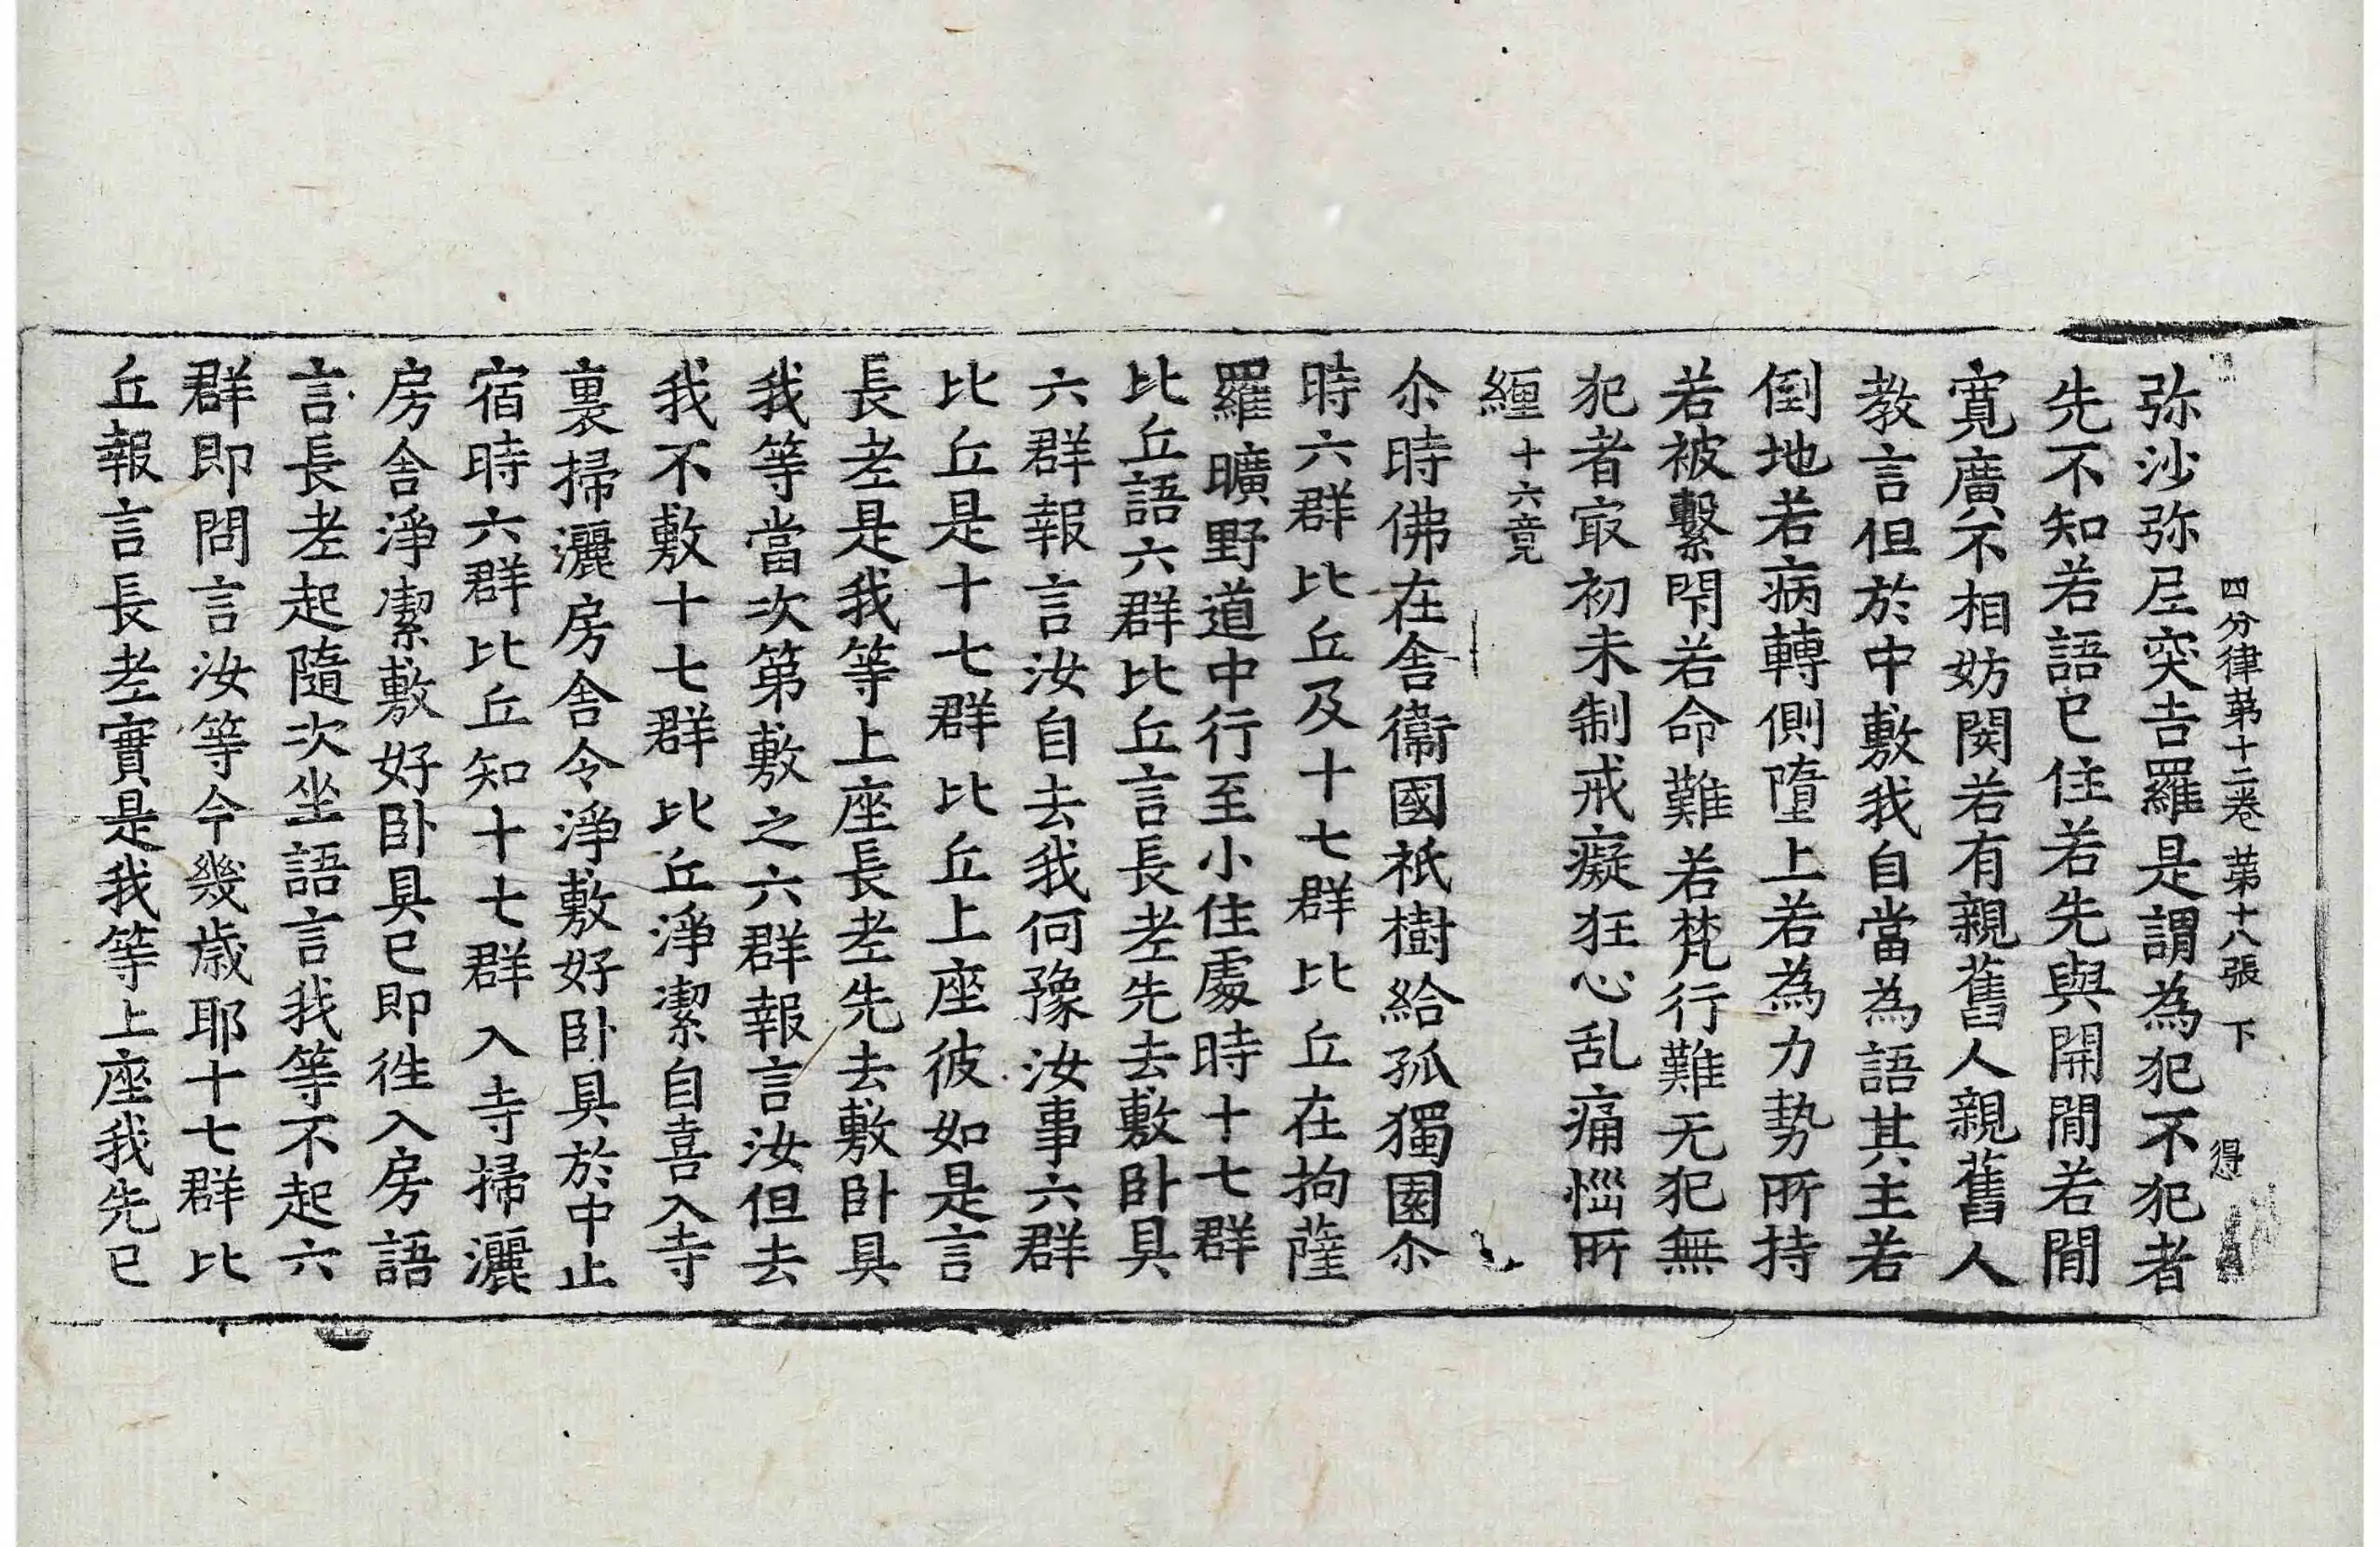 四分律苐十二卷 苐十八張 下 得
弥沙弥尼突吉羅是謂為犯不犯者
先不知若語已住若先與開閒若閒
寛廣不相妨閡若有親舊人親舊人
教言但於中敷我自當為語其主若
倒地若病轉側墮上若為力勢所持
若被繫閇若命難若梵行難无犯無
犯者㝡初未制戒癡狂心乱痛惱所
纒 十六竟
尒時佛在舍衞國祇樹給孤獨園尒
時六群比丘及十七群比丘在拘薩
羅曠野道中行至小住處時十七群
比丘語六群比丘言長老先去敷卧具
六群報言汝自去我何豫汝事六群
比丘是十七群比丘上座彼如是言
長老是我等上座長老先去敷卧具
我等當次第敷之六群報言汝但去
我不敷十七群比丘淨潔自喜入寺
裏掃灑房舍令淨敷好卧具於中止
宿時六群比丘知十七群入寺掃灑
房舍淨潔敷好卧具已即徃入房語
言長老起隨次坐語言我等不起六
群即問言汝等今幾歲耶十七群比
丘報言長老實是我等上座我先已